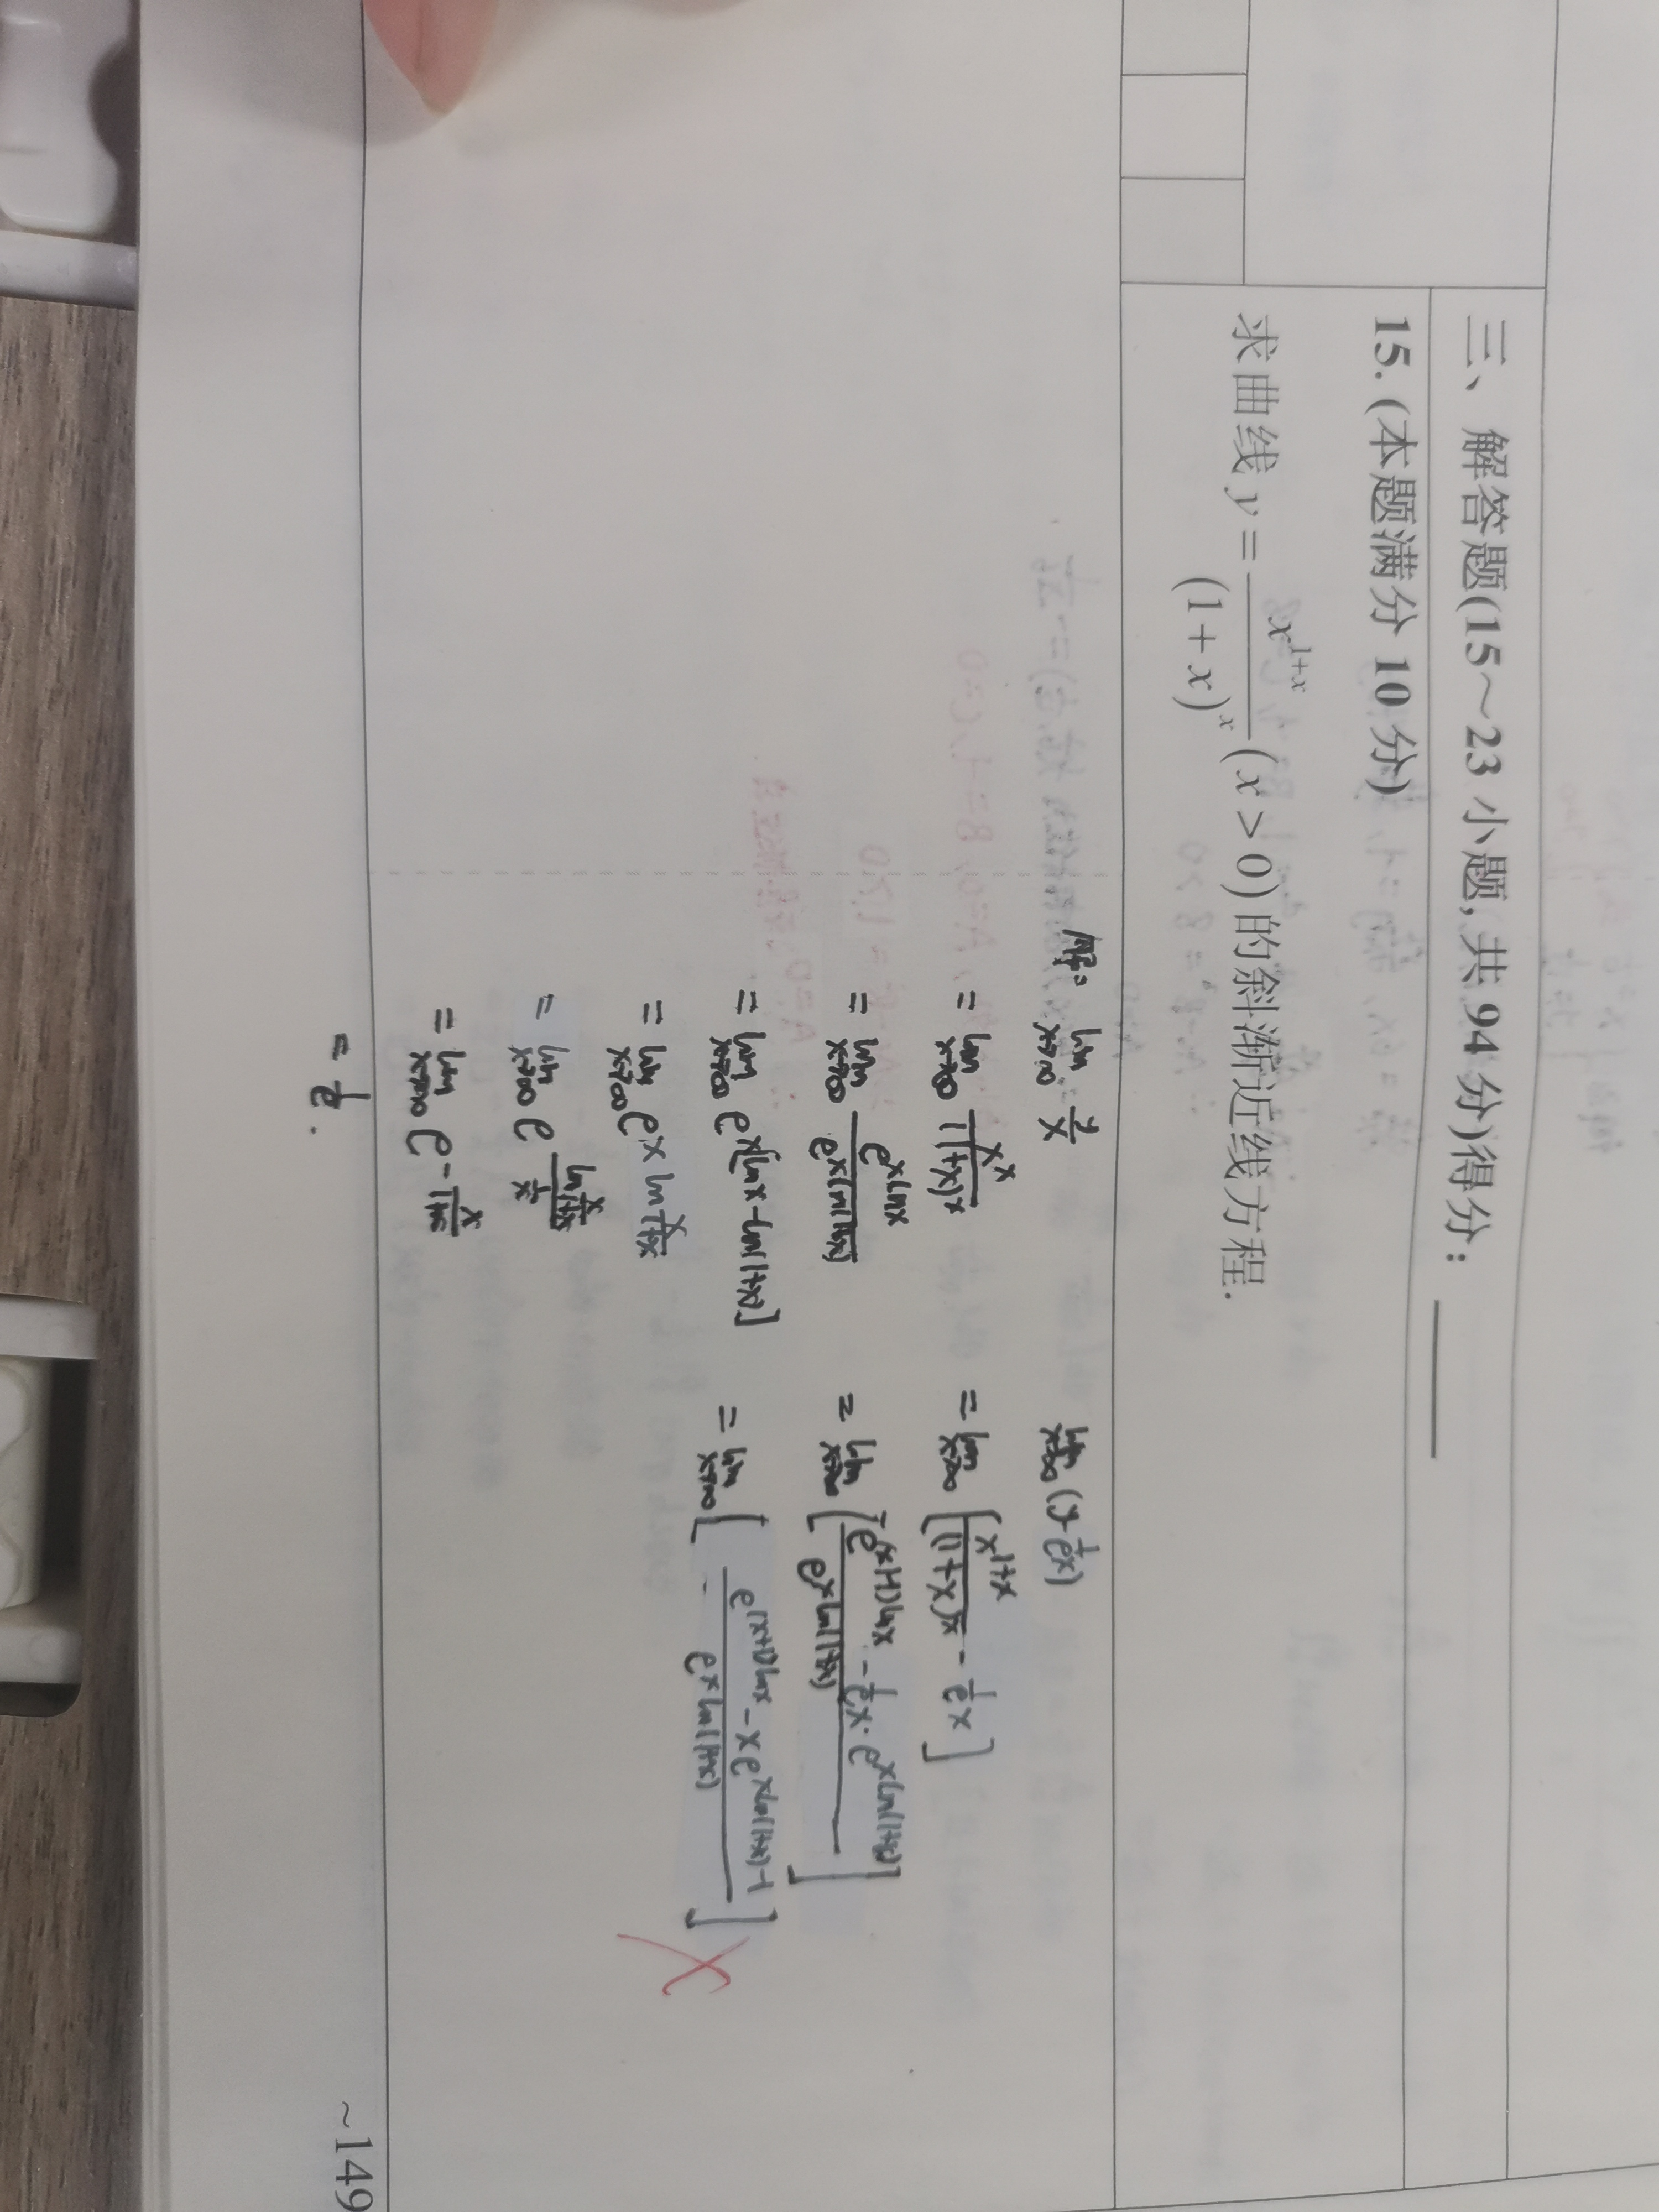 三、解答题(15～23 小题, 共 94 分)得分: ____
15. (本题满分 10 分)
求曲线 y = x^{1+x}/(1+x)^x (x > 0) 的斜渐近线方程.
解: lim_{x→∞} y/x
= lim_{x→∞} x^x/(1+x)^x
= lim_{x→∞} e^{xlnx}/e^{xln(1+x)}
= lim_{x→∞} e^{x[lnx-ln(1+x)]}
= lim_{x→∞} e^{x ln x/(1+x)}
= lim_{x→∞} e^{(ln x/(1+x))/(1/x)}
= lim_{x→∞} e^{-x/(1+x)}
= 1/e.
lim_{x→∞} (y-1/e x)
= lim_{x→∞} [x^{1+x}/(1+x)^x - 1/e x]
= lim_{x→∞} [(e^{(x+1)lnx} - 1/e x · e^{xln(1+x)})/e^{xln(1+x)}]
= lim_{x→∞} [(e^{(x+1)lnx} - x e^{xln(1+x)-1})/e^{xln(1+x)}]
~149